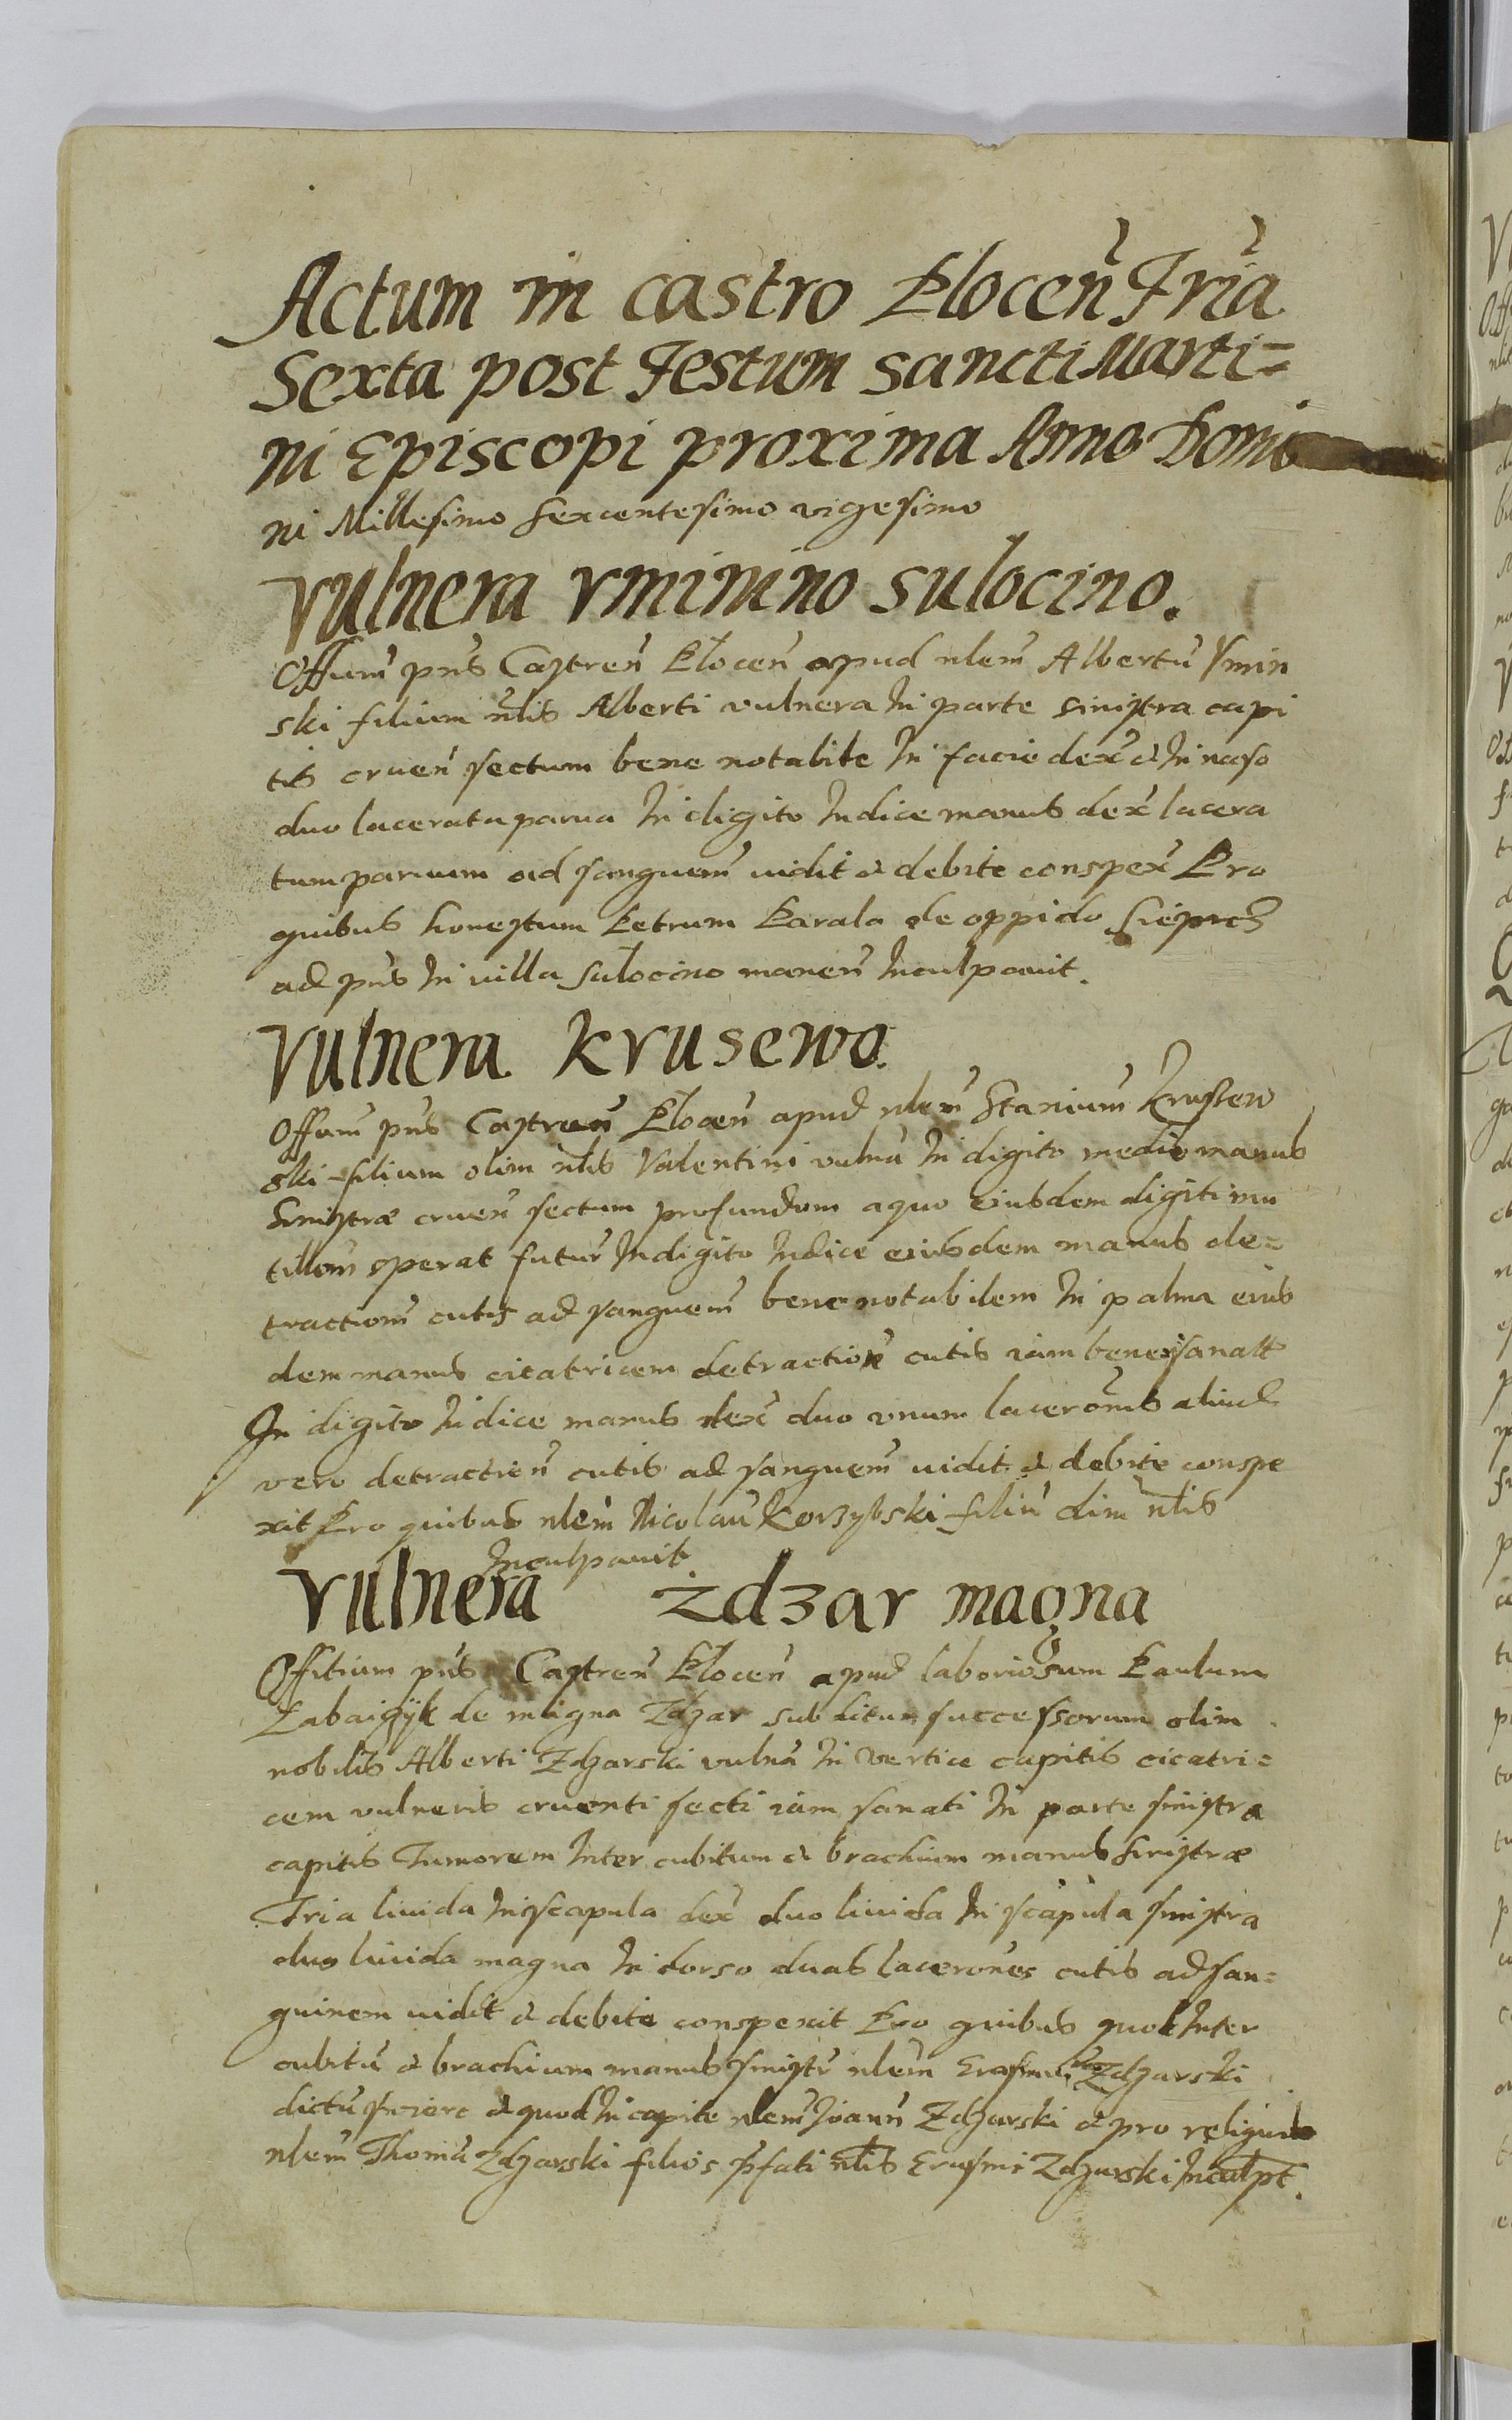 Actum in castro Plocen̄ Fria
Sexta post Festum Sancti Marti=
ni Episcopi proxima Anno Domi
ni Millesimo Sexcentesimo vigesimo
Vulnera Yminino Sulocino.
Offium pns Castren̄ Plocen̄ apud nlem̄ Albertū Ymin
ski filium nlis Alberti vulnera in parte sinistra capi
tis cruen̄ sectum bene notabile In facie dex̄ & In naso
duo lacerata parua In digito Indice manus dex̄ lacera
tum paruum ad sanguem̄ vidit & debite conspex̄ Pro
quibus honestum Petrum Parala de oppido Sieprcz
ad pns In villa Sulocino manen̄ Inculpauit.
Vulnera Krusewo.
Offium̄ pns Castren̄ Plocen̄ apud nlem̄ Stanium̄ Krussew
ski filium olim nlis Valentini vulnā In digito medio manus
Sinistræ cruen̄ sectum profundum a quo eiusdem digiti mu
tillom̄ sperat futur̄ In digito Indice eiusdem manus de=
tractiom̄ cutis ad sanguem̄ bene notabilem In palma eius
dem manus cicatricem detraction̄ cutis iam bene sanatt
In digito Indice manus dex̄ duo vnum laceronis aliud
vero detraction̄ cutis ad sanguem̄ vidit & debite conspe
xit Pro quibus nlem̄ Nicolaū Korzybski filiū olim nlis
Inculpauit.
Vulnera Zdzar magna
Offitium pns Castren̄ Plocen̄ apud laboriosum Paulum
Zabaigijk de magna Zdzar subditum successorum olim
nobilis Alberti Zdzarski vulnā In vertice capitis cicatri=
cem vulneris cruenti secti iam sanati In parte sinistra
capitis Tumorem Inter cubitum & brachium manus sinistræ
Tria liuida In scapula dex̄ duo liuida In scapula sinistra
duo liuida magna In dorso duas lacerones cutis ad san=
guinem vidit & debite conspexit Pro quibus quod Inter
cubitū & brachium manus sinistr̄ nlem̄ Erasmū Zdzarski
& quod In capite nlem̄ Joann̄ Zdzarski & pro reliquis
nlem̄ Thomā Zdzarski filios pfati nlis Erasmi Zdzarski Inculpt.